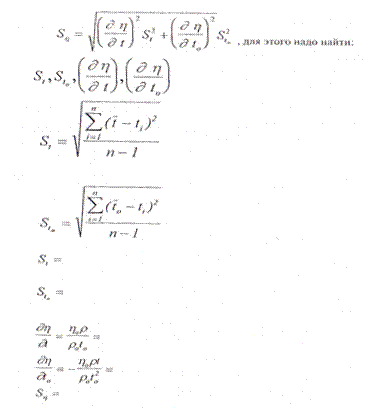 S_η = √((∂η/∂t)² S_t² + (∂η/∂t_o)² S_{t_o}²) , для этого надо найти:
S_t, S_{t_o}, (∂η/∂t), (∂η/∂t_o)
S_t = √(∑_{i=1}^{n} (t̄ − t_i)² / (n − 1))
S_{t_o} = √(∑_{i=1}^{n} (t̄_o − t_i)² / (n − 1))
S_t =
S_{t_o} =
∂η/∂t = η_oρ/ρ_ot_o =
∂η/∂t_o = −η_oρt/ρ_ot_o² =
S_η =